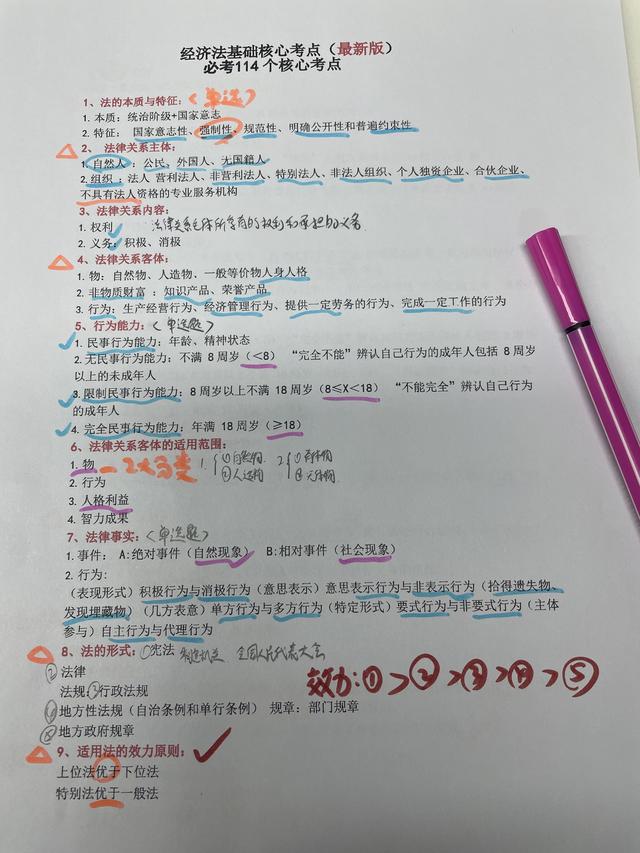 经济法基础核心考点（最新版）
必考114个核心考点
1、法的本质与特征：（单选）
1. 本质：统治阶级+国家意志
2. 特征： 国家意志性、强制性、规范性、明确公开性和普遍约束性
2、 法律关系主体：
1. 自然人 ：公民、外国人、无国籍人
2. 组织 ：法人 营利法人、非营利法人、特别法人、非法人组织、个人独资企业、合伙企业、
不具有法人资格的专业服务机构
3、法律关系内容：
1. 权利 法律关系主体所享有的权利和承担的义务
2. 义务：积极、消极
4、法律关系客体：
1. 物：自然物、人造物、一般等价物人身人格
2. 非物质财富 ：知识产品、荣誉产品
3. 行为：生产经营行为、经济管理行为、提供一定劳务的行为、完成一定工作的行为
5、行为能力：（单选题）
1. 民事行为能力：年龄、精神状态
2. 无民事行为能力：不满 8 周岁（<8） “完全不能”辨认自己行为的成年人包括 8 周岁
以上的未成年人
3. 限制民事行为能力：8 周岁以上不满 18 周岁（8≤X<18） “不能完全”辨认自己行为
的成年人
4. 完全民事行为能力：年满 18 周岁（≥18）
6、法律关系客体的适用范围：
1. 物 一2大分类 1.{①自然物 2{①有体物
②人造物 ②无体物
2. 行为
3. 人格利益
4. 智力成果
7、法律事实：（单选题）
1. 事件： A:绝对事件（自然现象） B:相对事件（社会现象）
2. 行为：
（表现形式）积极行为与消极行为（意思表示）意思表示行为与非表示行为（拾得遗失物、
发现埋藏物）（几方表意）单方行为与多方行为（特定形式）要式行为与非要式行为（主体
参与）自主行为与代理行为
8、法的形式：①宪法 制定机关 全国人民代表大会
②法律
法规：③行政法规 效力：①>②>③>④>⑤
④地方性法规（自治条例和单行条例） 规章：部门规章
⑤地方政府规章
9、适用法的效力原则：
上位法优于下位法
特别法优于一般法